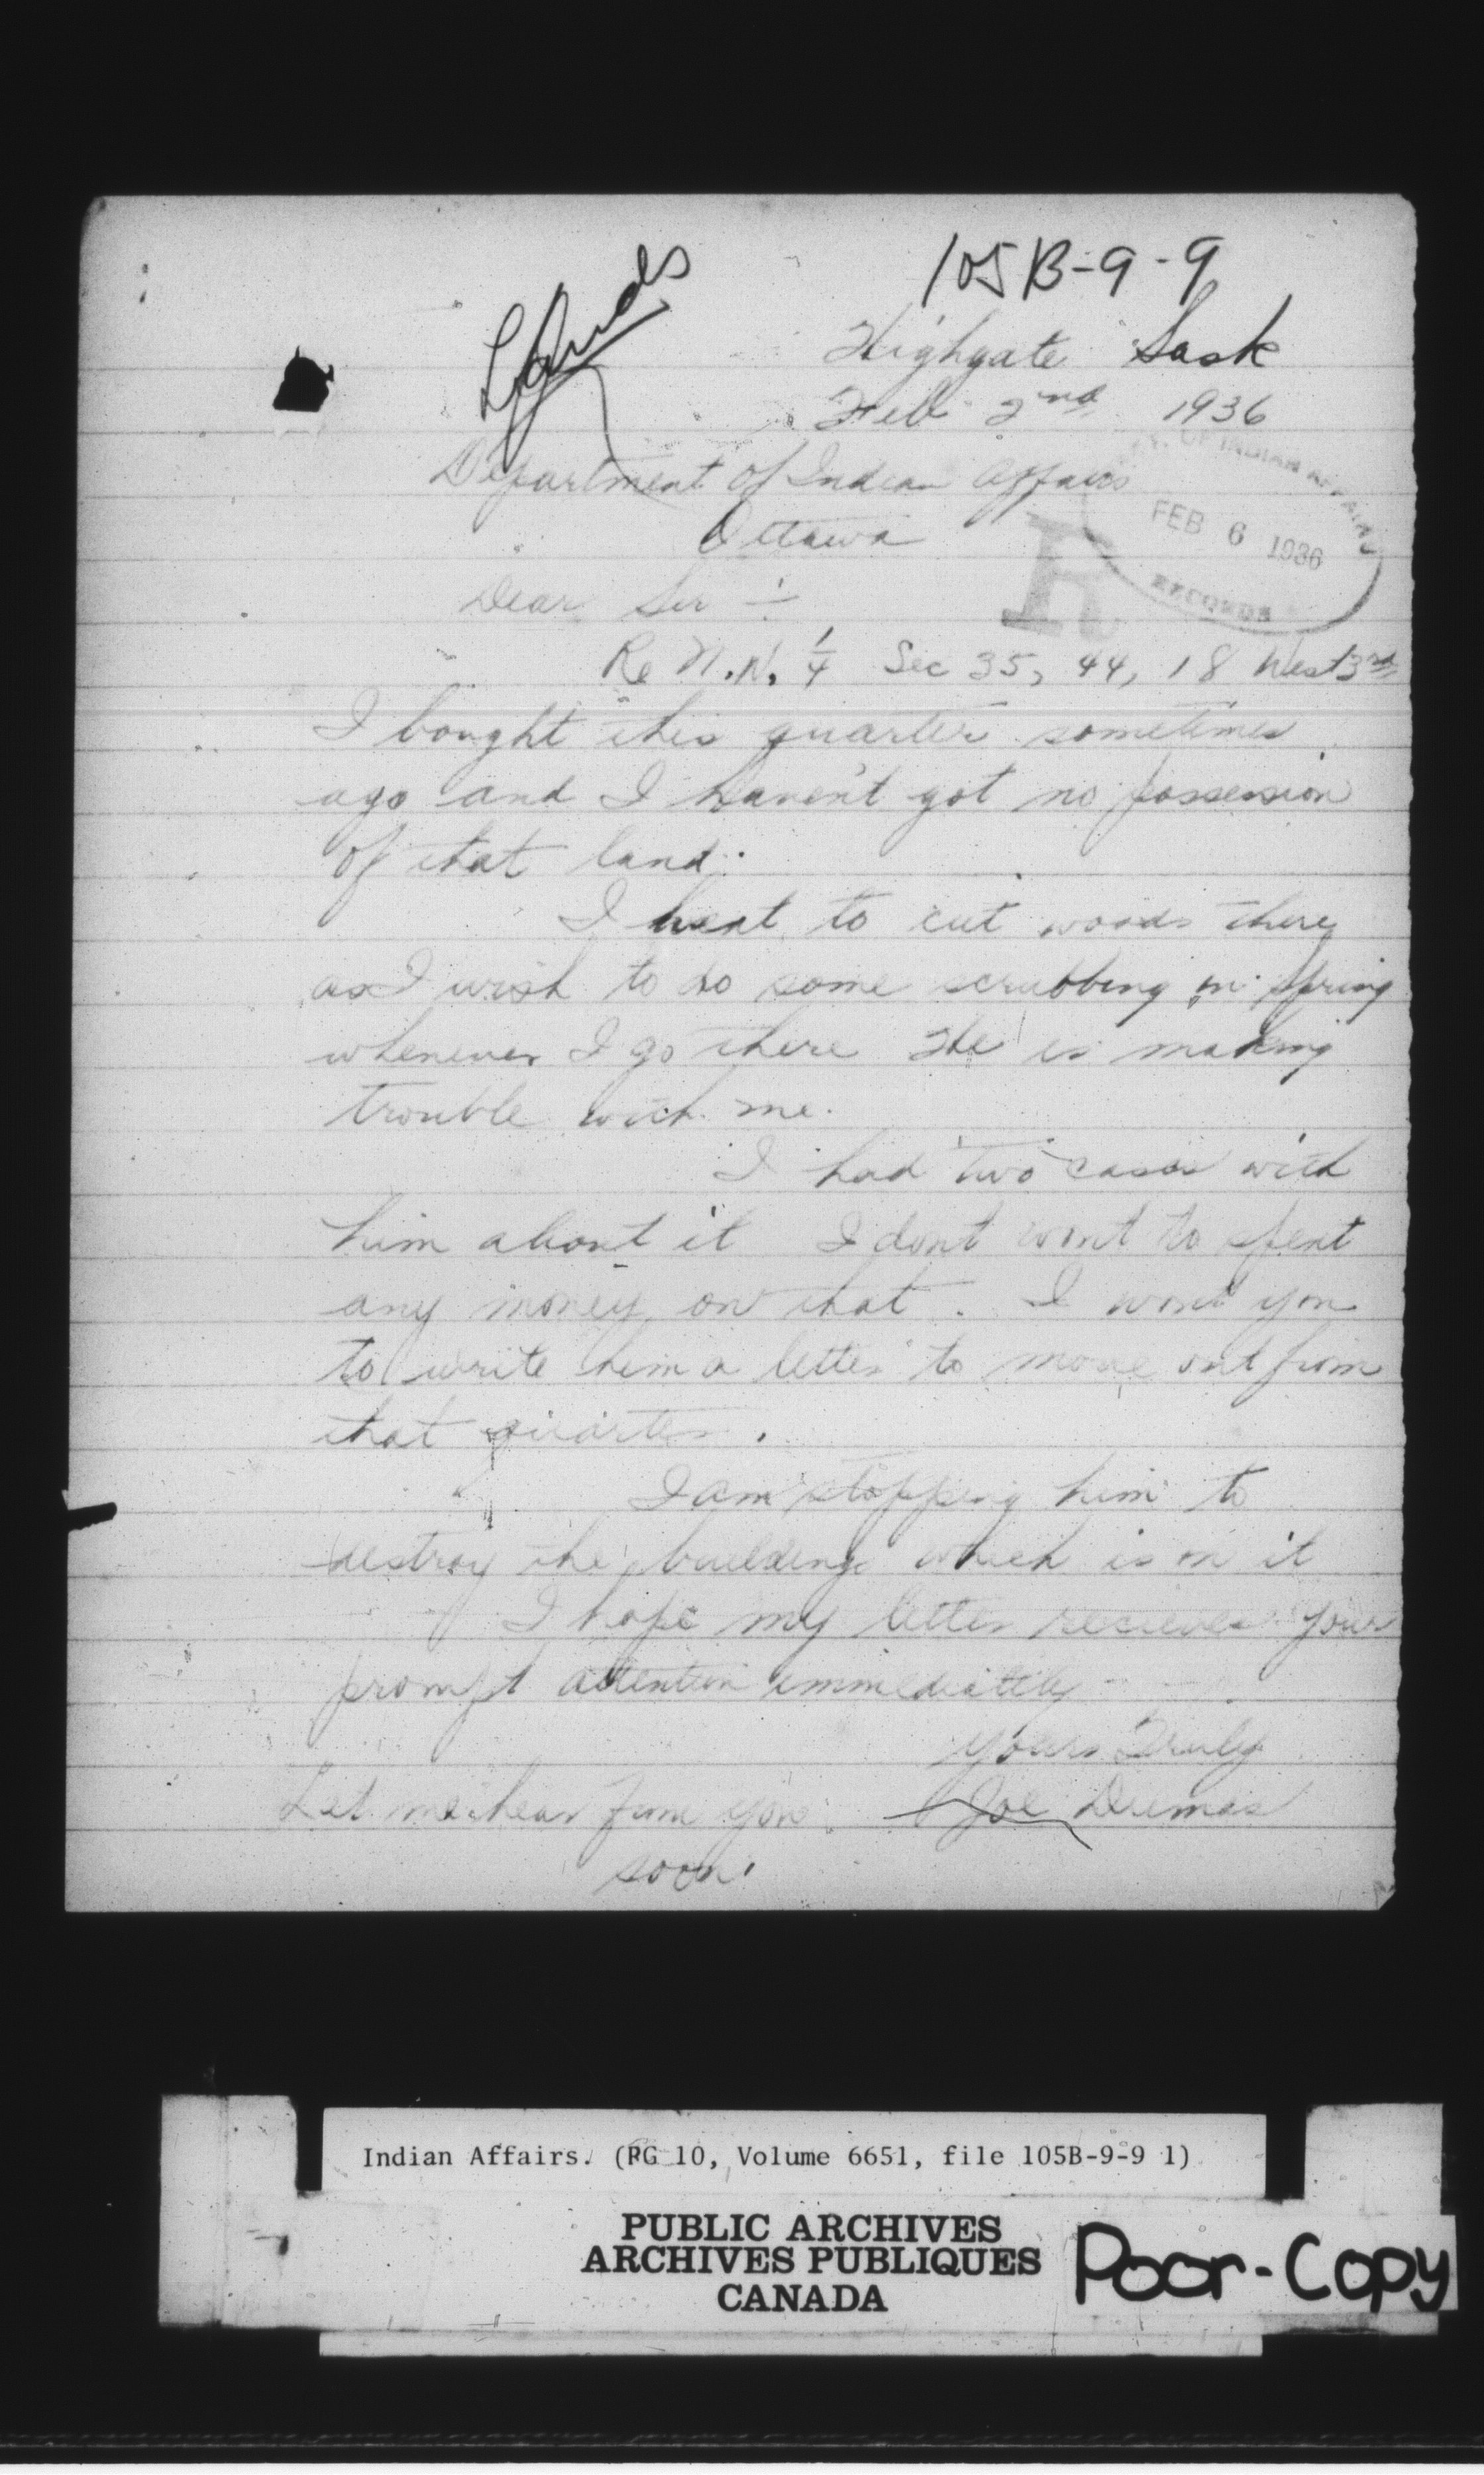 105B-9-9
Highgate Sask
Feb 2nd 1936
Department of Indian Affairs
OF INDIAN AFFAIRS
FEB 6 1936
RECORDS
R
Ottawa
Dear Sir :-
Re N.W. 1/4 Sec 35, 44, 18 West 3rd
I bought this quarter sometimes
ago and I haven't got no possession
of that land.
I went to cut woods there
as I wish to do some scrubbing in spring
whenever I go there He is making
trouble with me.
I had two cases with
him about it I dont want to spent
any money on that. I want you
to write him a letter to move out from
that quarter.
I am stopping him to
destroy the building which is on it
I hope my letter recieves your
prompt attention immediately
Yours Truly
Let me hear from you Joe Dumas
soon.
Indian Affairs. (RG 10, Volume 6651, file 105B-9-9 1)
PUBLIC ARCHIVES
ARCHIVES PUBLIQUES
CANADA
Poor-Copy